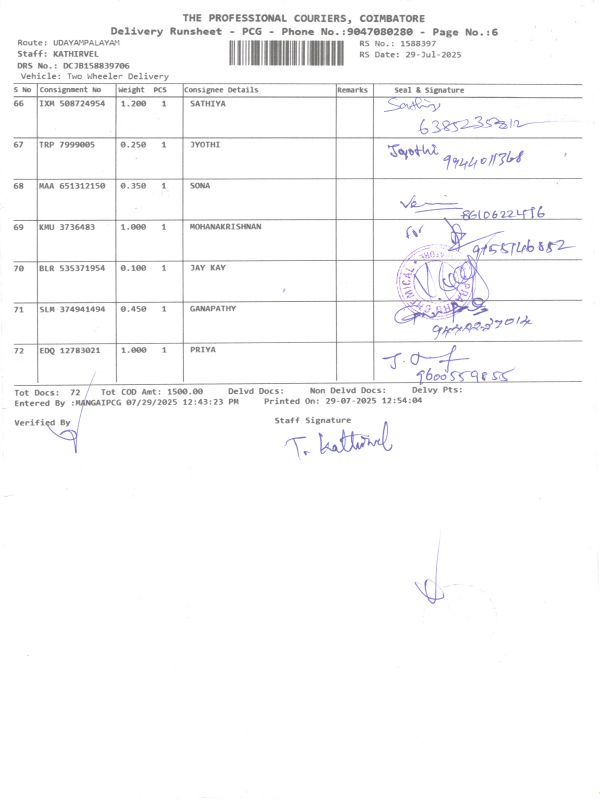 THE PROFESSIONAL COURIERS, COIMBATORE
Delivery Runsheet - PCG - Phone No.:9047080280 - Page No.:6
Route: UDAYAMPALAYAM
Staff: KATHIRVEL
DRS No.: DCJB158839706
Vehicle: Two Wheeler Delivery
RS No.: 1588397
RS Date: 29-Jul-2025
S No Consignment No Weight PCS Consignee Details Remarks Seal & Signature
66 IXM 508724954 1.200 1 SATHIYA Sathiya
6385235812
67 TRP 7999005 0.250 1 JYOTHI Jyothi 9944011368
68 MAA 651312150 0.350 1 SONA
69 KMU 3736483 1.000 1 MOHANAKRISHNAN
70 BLR 535371954 0.100 1 JAY KAY
71 SLM 374941494 0.450 1 GANAPATHY
72 EDQ 12783021 1.000 1 PRIYA
9600559855
Tot Docs: 72 Tot COD Amt: 1500.00 Delvd Docs: Non Delvd Docs: Delvy Pts:
Entered By :MANGAIPCG 07/29/2025 12:43:23 PM Printed On: 29-07-2025 12:54:04
Verified By
Staff Signature
T. Kathirvel